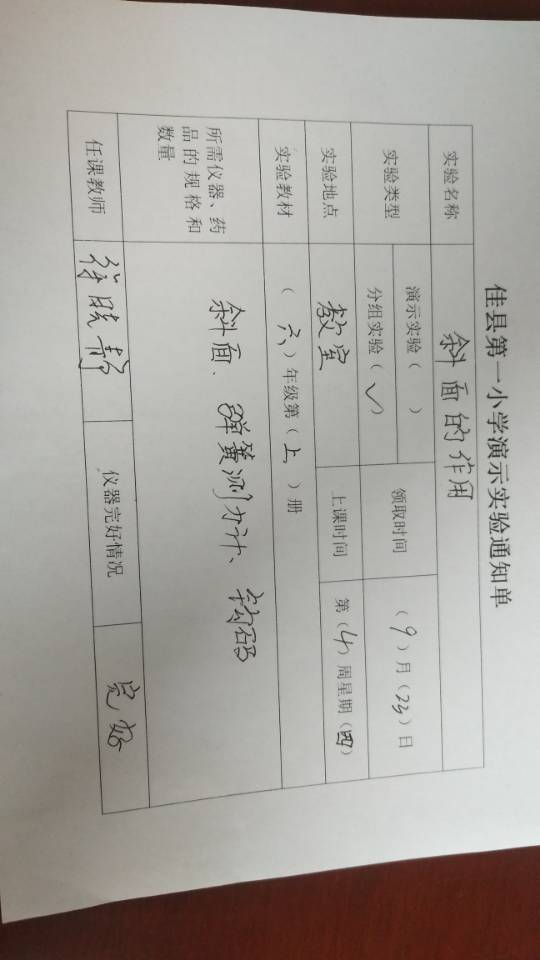 佳县第一小学演示实验通知单
实验名称 斜面的作用
实验类型 演示实验（ ） 分组实验（✓） 领取时间 （9）月（23）日
实验地点 教室 上课时间 第（4）周星期（四）
实验教材 （六）年级第（上）册
所需仪器、药
品的规格和
数量
斜面、弹簧测力计、钩码
任课教师 徐晓静 仪器完好情况 完好